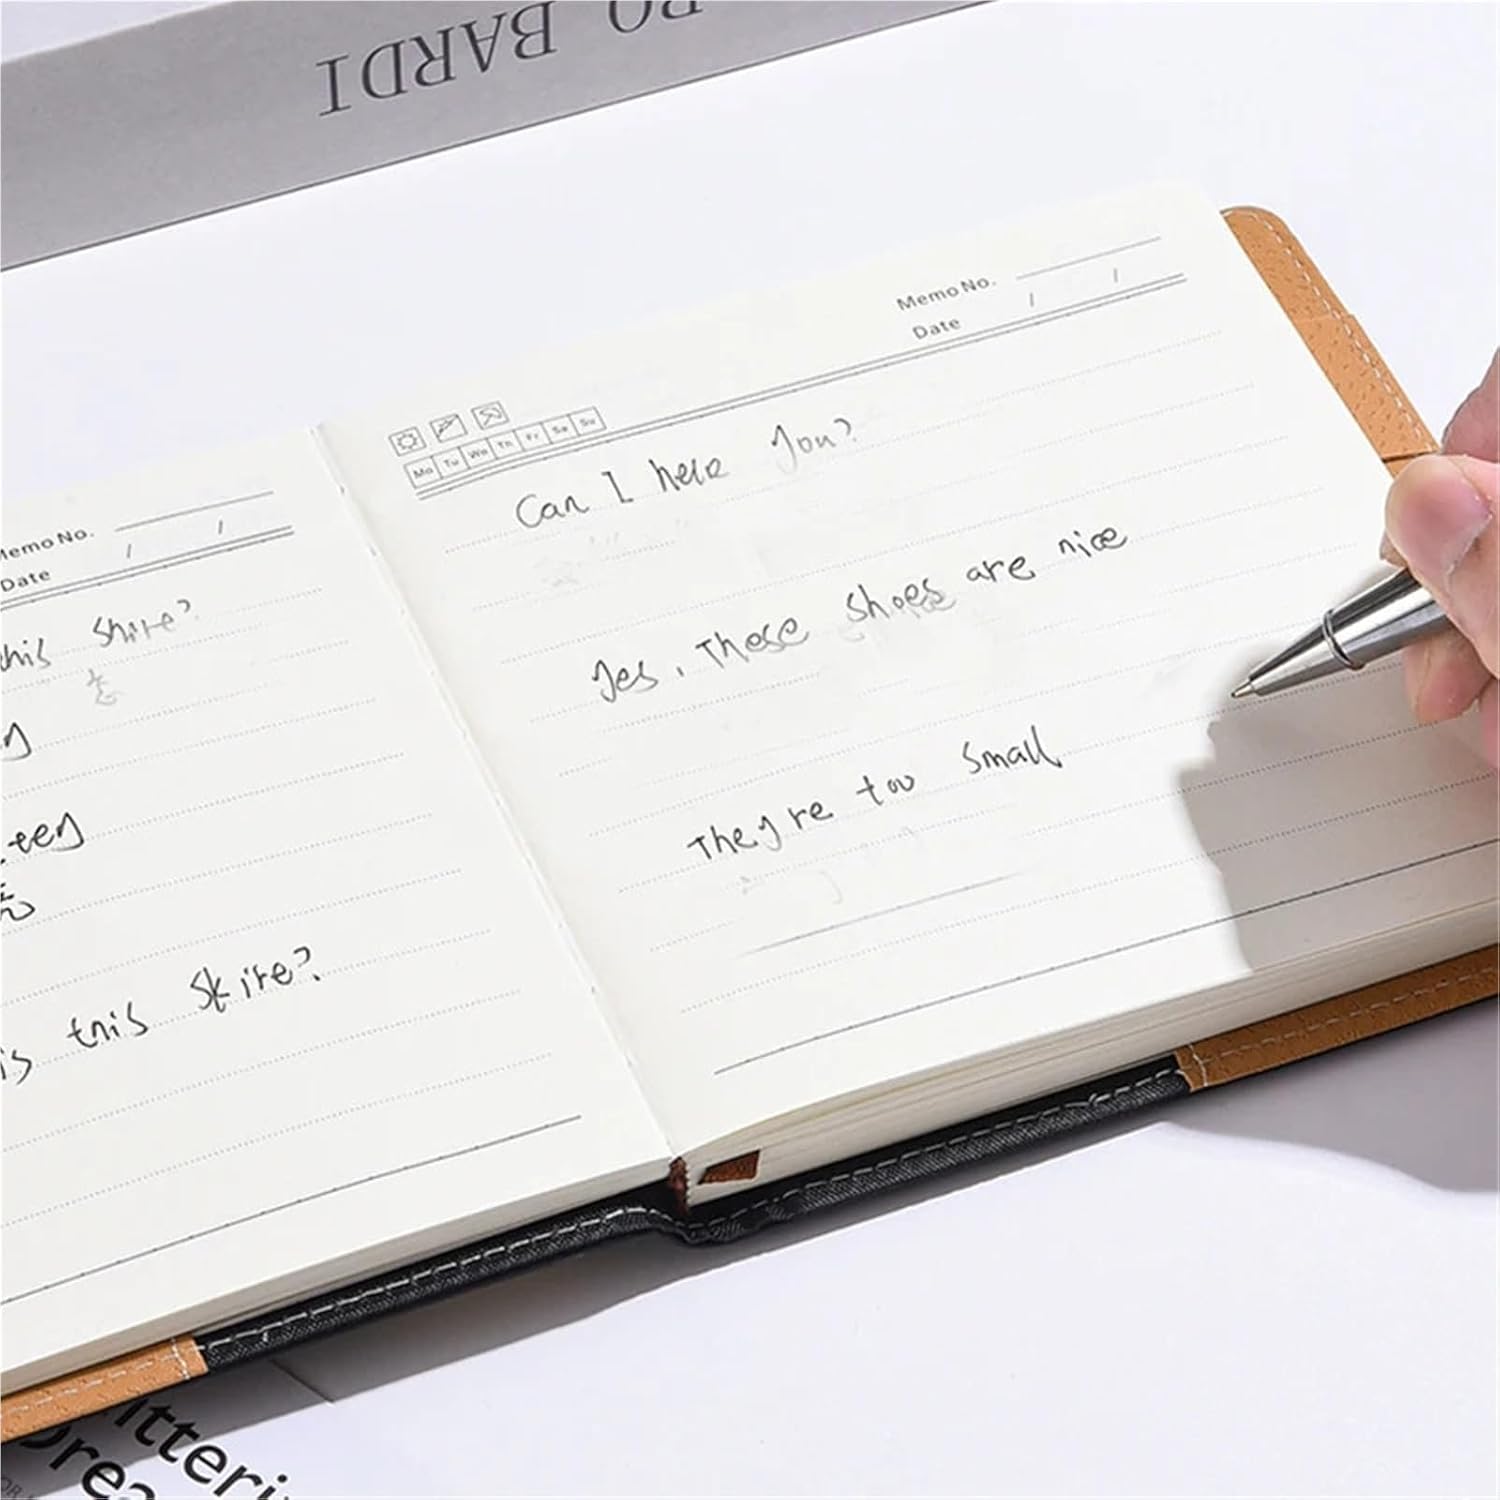 BO BARDI
Memo No.
Date / /
this Shire?
is this Skire?
Memo No.
Date / /
Mo Tu We Th Fr Sa Su
Can I help you?
Yes, These shoes are nice
They're too small